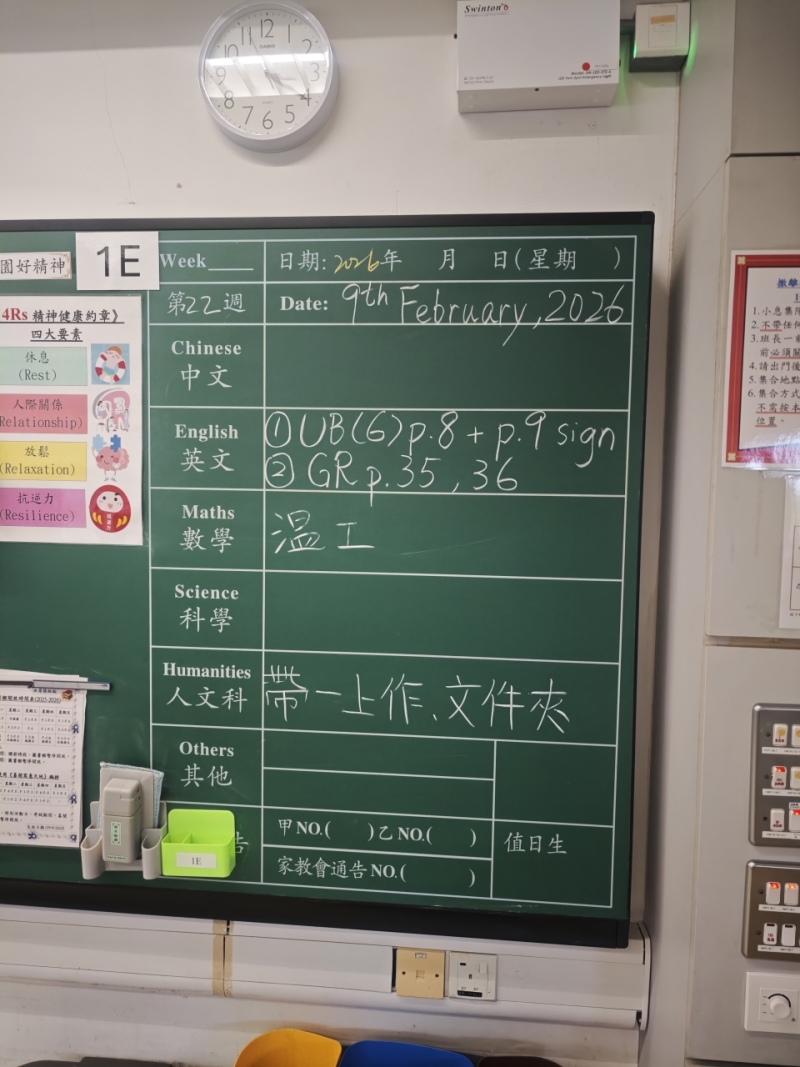 12
11
1
10
2
9
3
8
4
7
5
6
CASIO
Swinton
園好精神
1E
Week
日期: 2026年 月 日(星期 )
第22週
Date: 9th February, 2026
4Rs 精神健康約章》
四大要素
休息
(Rest)
人際關係
Relationship)
放鬆
(Relaxation)
抗逆力
(Resilience)
Chinese
中文
English
英文
①UB(6)p.8 + p.9 sign
②GR p.35, 36
Maths
數學
溫工
Science
科學
Humanities
人文科
帶一上作、文件夾
Others
其他
告
甲NO.( )乙NO.( )
家教會通告NO.( )
值日生
1E
1. 小息集
2. 不帶任何
3. 班長一前
前必須關
4. 請出門後
5. 集合地點
6. 集合方式
不需按本
位置。